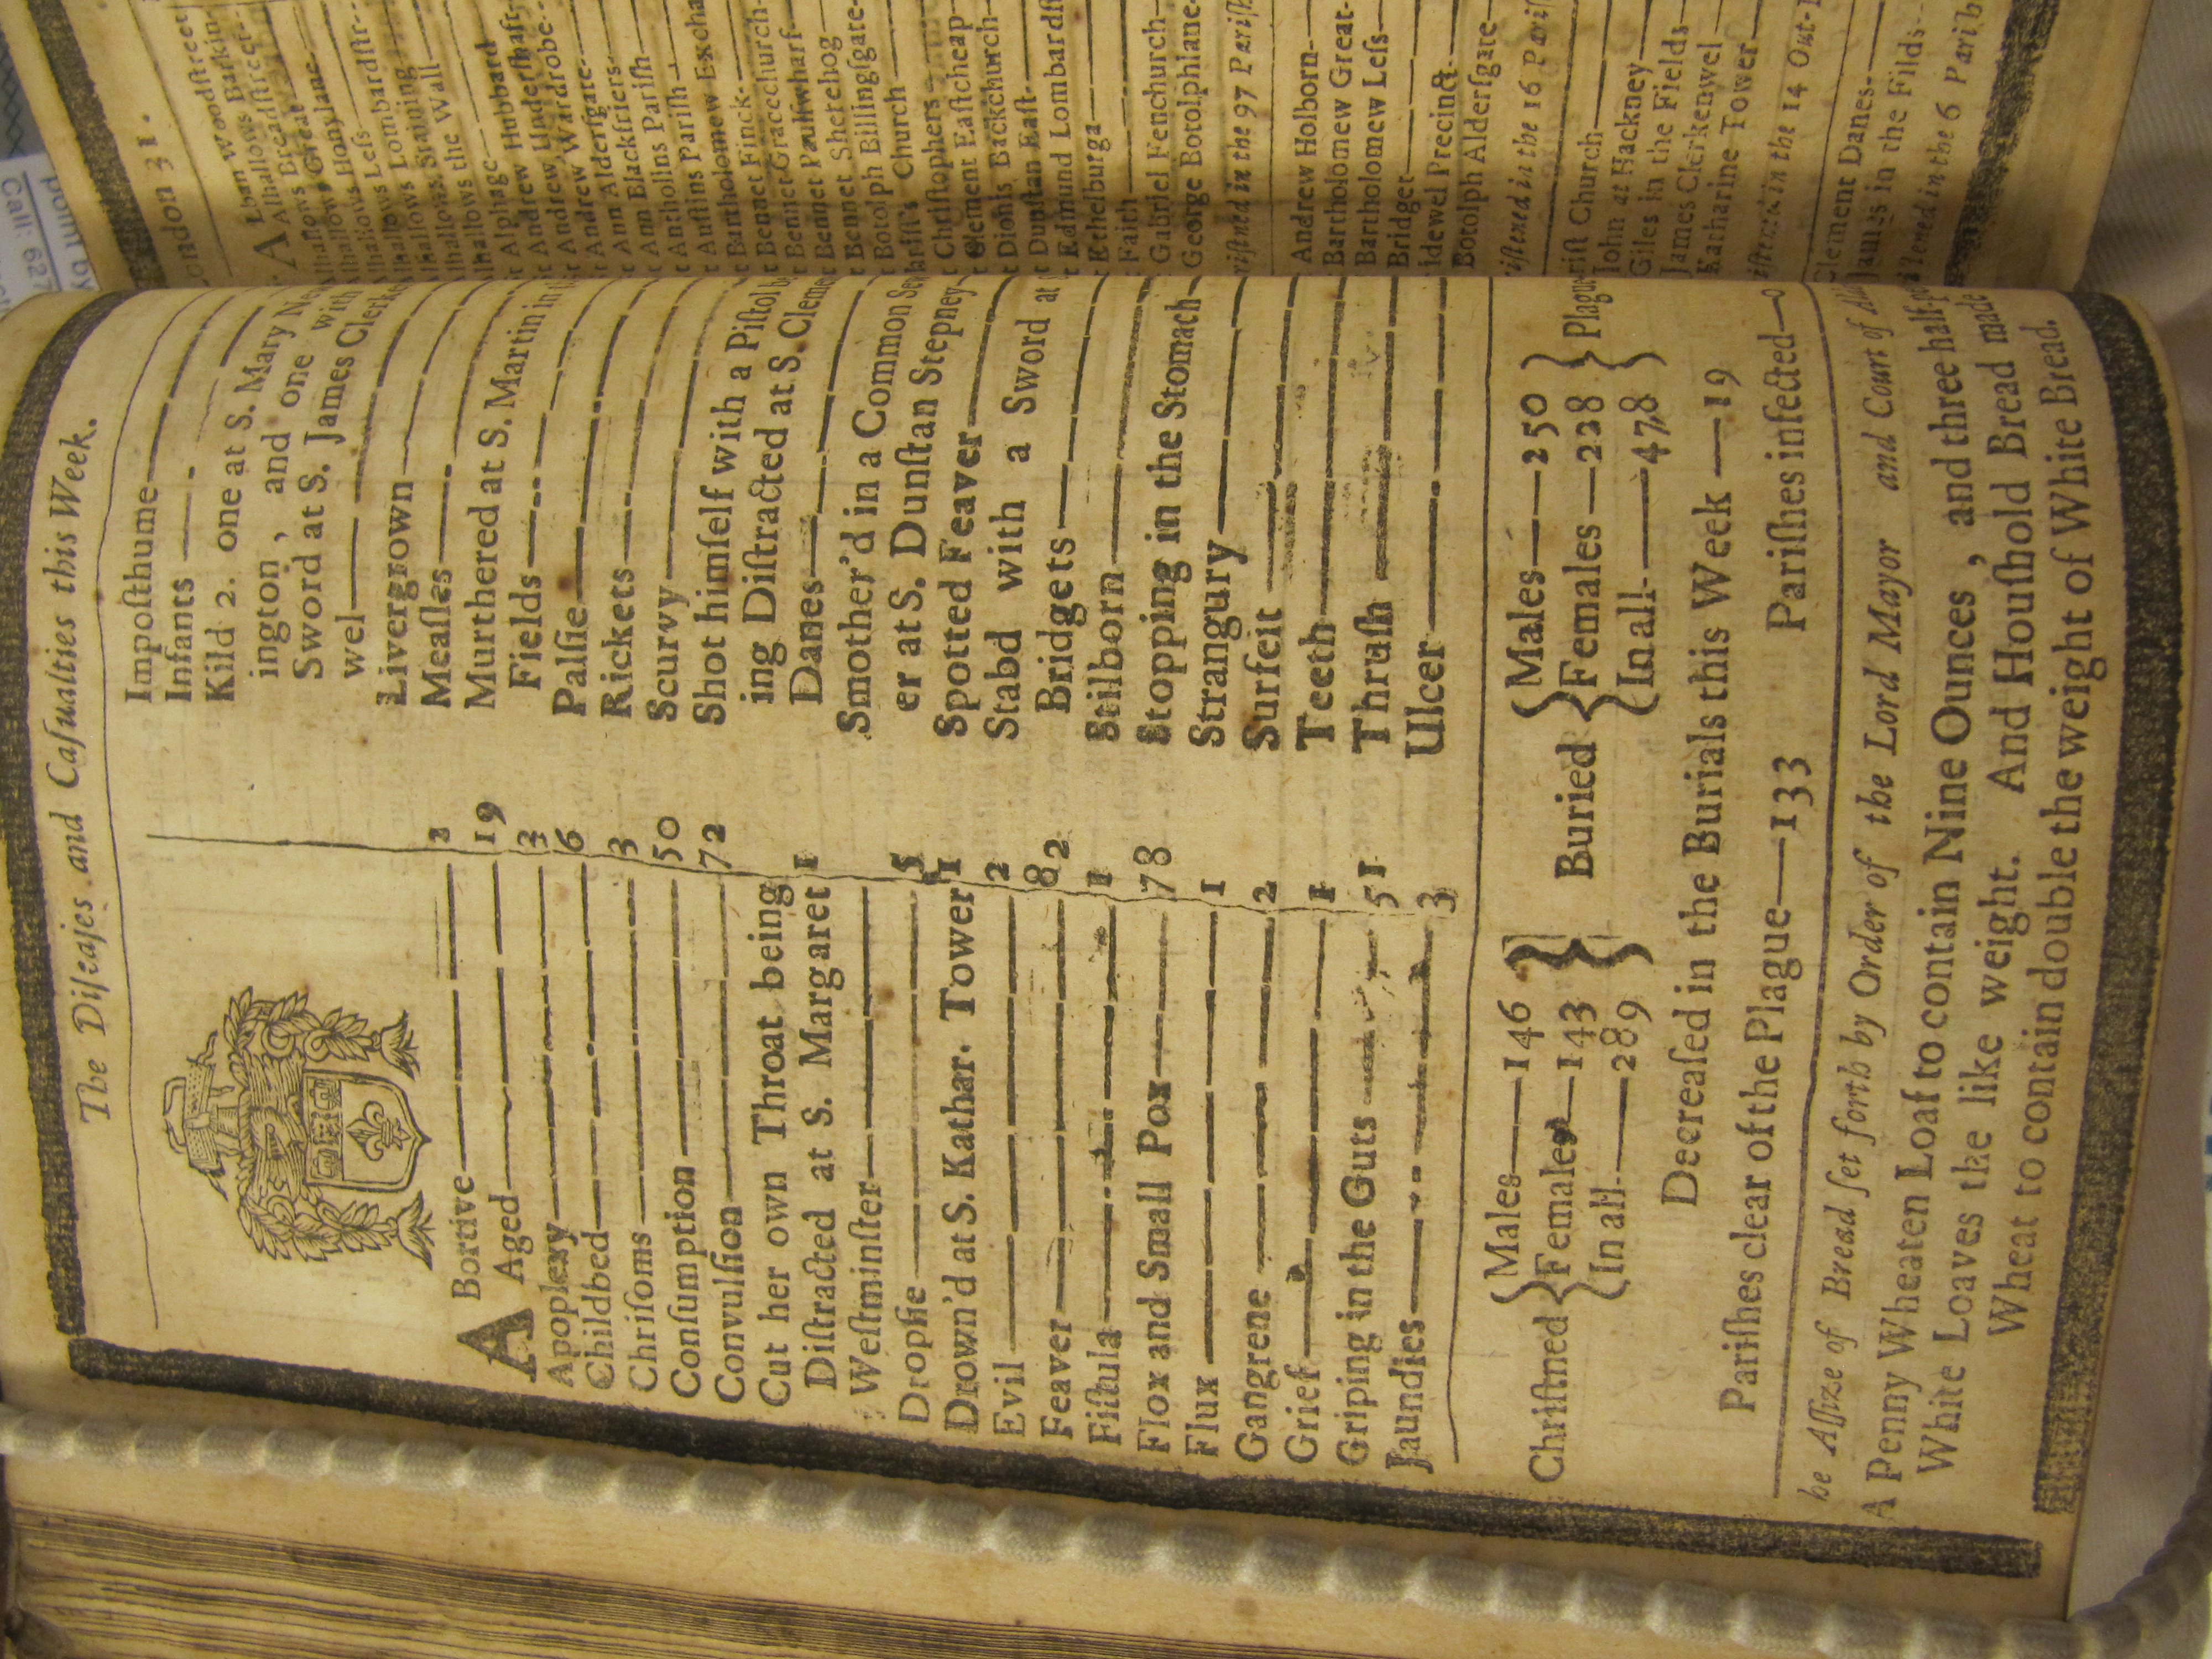 The Diſeaſes and Caſualties this Week.
A Bortive—— 2
Aged—— 19
Apoplexy——
Childbed—— 6
Chriſoms—— 3
Conſumption—— 50
Convulſion—— 72
Cut her own Throat being
Diſtracted at S. Margaret 1
Weſtminſter——
Dropſie—— 5
Drown'd at S. Kathar. Tower 1
Evil—— 2
Feaver—— 82
Fiſtula—— 1
Flox and Small Pox—— 78
Flux—— 1
Gangrene—— 2
Grief—— 1
Griping in the Guts—— 51
Jaundies—— 3
Impoſthume——
Infants——
Kild 2. one at S. Mary Ne
ington, and one with
Sword at S. James Clerke
wel——
Livergrown——
Meaſles——
Murthered at S. Martin in
Fields——
Palſie——
Rickets——
Scurvy——
Shot himſelf with a Piſtol b
ing Diſtracted at S. Cleme
Danes——
Smother'd in a Common Sew
er at S. Dunſtan Stepney
Spotted Feaver——
Stabd with a Sword at
Bridgets——
Stilborn——
Stopping in the Stomach—
Strangury——
Surfeit——
Teeth——
Thruſh——
Ulcer——
Chriſtned { Males—146 Females—143 In all—289 }
Buried { Males—250 Females—228 In all—478 } Plague
Decreaſed in the Burials this Week—19
Pariſhes clear of the Plague—133 Pariſhes infected—0
he Aſſize of Bread ſet forth by Order of the Lord Mayor and Court of Al
A Penny Wheaten Loaf to contain Nine Ounces, and three half-p
White Loaves the like weight. And Houſhold Bread made
Wheat to contain double the weight of White Bread.
ondon 31.
A Lban Woodſtreet
Alhallows Barkin
Alhallows Breadſtreet
lhallows Great
lhallows Honylane
lhallows Leſs
lhallows Lombardſtr
lhallows Staining
lhallows the Wall
t Alphage
t Andrew Hubbard
t Andrew Underſhaft
t Andrew Wardrobe
t Ann Alderſgate
t Ann Blackfriers
t Antholins Pariſh
t Auſtins Pariſh
t Bartholomew Excha
t Bennet Finck
t Bennet Gracechurch
t Bennet Paulſwharf
t Bennet Sherehog
t Botolph Billingſgate
hriſts Church
t Chriſtophers
t Clement Eaſtcheap
t Dionis Backchurch
t Dunſtan Eaſt
t Edmund Lombardſt
t Ethelburga
t Faith
t Gabriel Fenchurch
t George Botolphlane
riſtned in the 97 Pariſh
t Andrew Holborn
t Bartholomew Great
t Bartholomew Leſs
t Bridget
idewel Precinct
Botolph Alderſgate
riſtned in the 16 Pariſ
riſt Church
John at Hackney
Giles in the Fields
James Clerkenwel
Katharine Tower
iſtned in the 14 Out-
Clement Danes
Paul's in the Filds
iſtened in the 6 Pariſh
point by
Call: 627